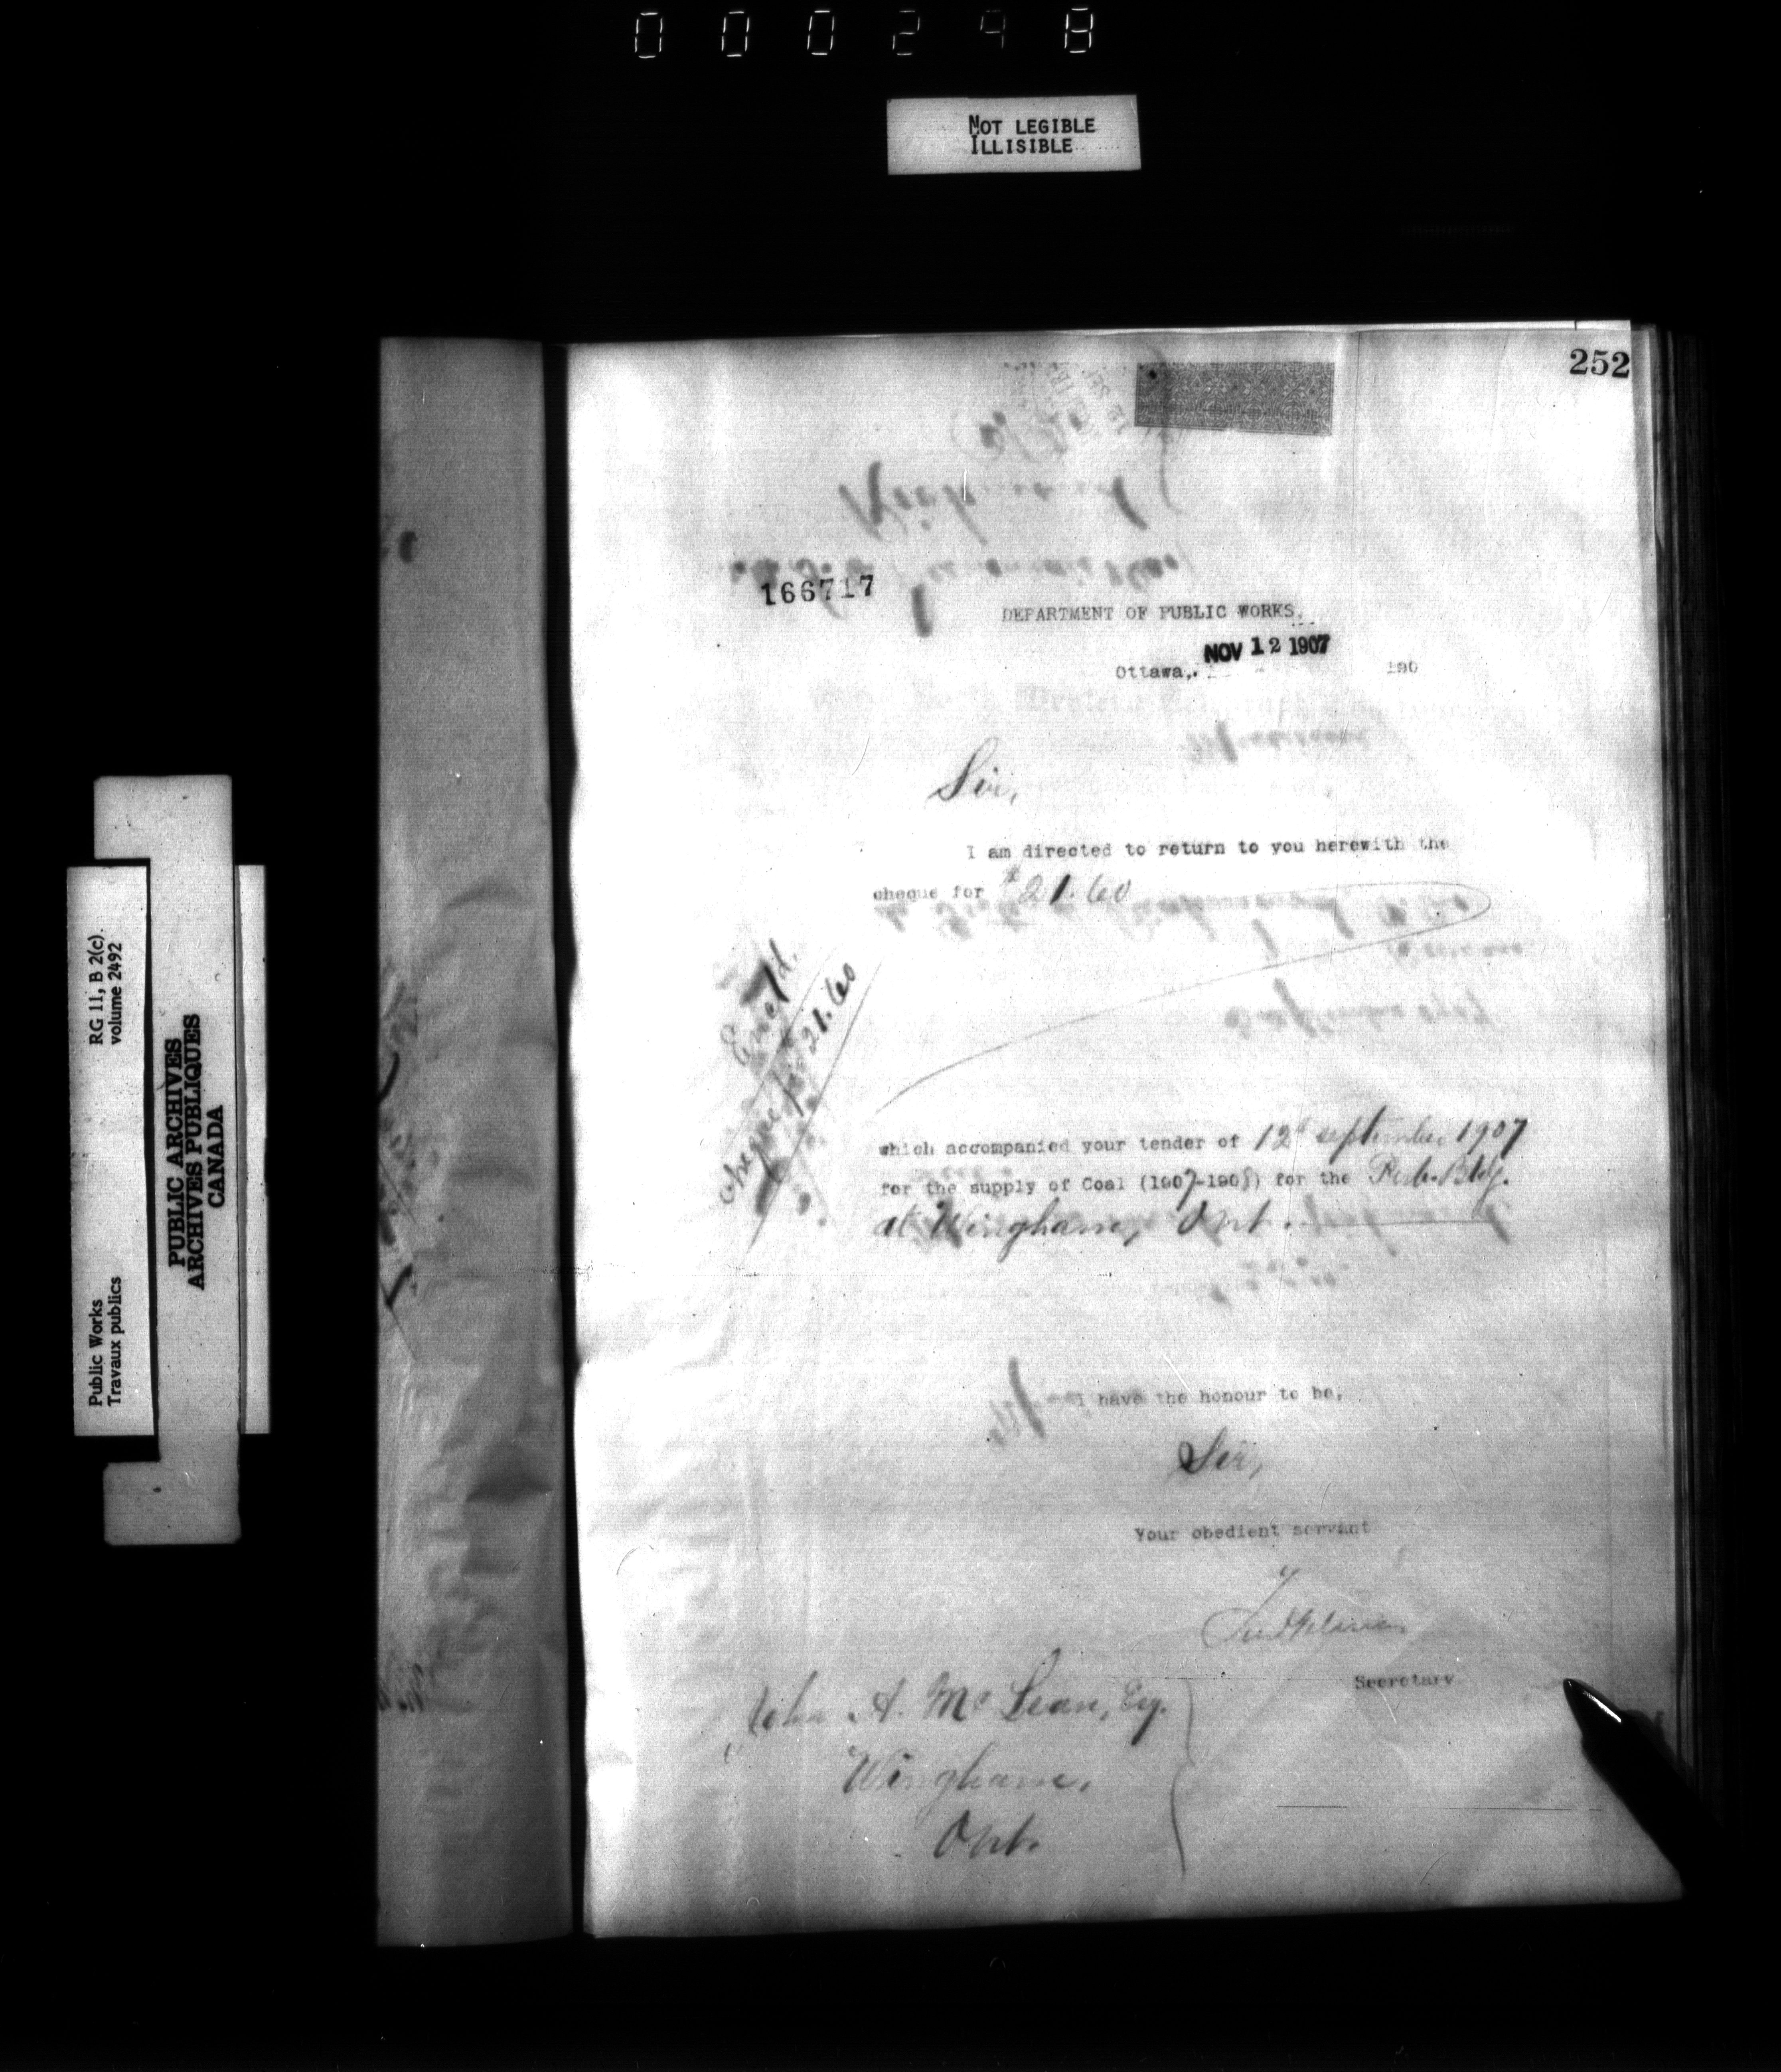 000248
NOT LEGIBLE
ILLISIBLE
252
166717
DEPARTMENT OF PUBLIC WORKS.
NOV 12 1907
Ottawa, 190
Sir,
I am directed to return to you herewith the
cheque for $21.60
Encl'd.
cheque for $21.60
which accompanied your tender of 12th september 1907
for the supply of Coal (1907-1908) for the Pub. Bldg.
at Wingham, Ont.
I have the honour to be,
Sir,
Your obedient servant
Secretary
John A. McLean, Esq.
Wingham,
Ont.
RG 11, B 2(c).
volume 2492
Public Works
Travaux publics
PUBLIC ARCHIVES
ARCHIVES PUBLIQUES
CANADA